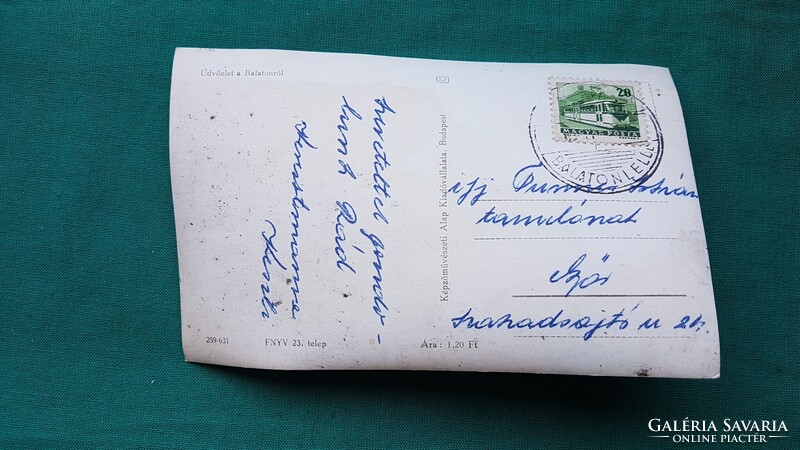 Üdvözlet a Balatonról
szeretettel gondo-
lunk Rád
Képzőművészeti Alap Kiadóvállalata, Budapest
20
MAGYAR POSTA
BALATONLELLE
ifj
István
tanulónak
Győr
Szabadsajtó u
259-631
FNYV 23. telep
Ára: 1,20 Ft
GALÉRIA SAVARIA
ONLINE PIACTÉR